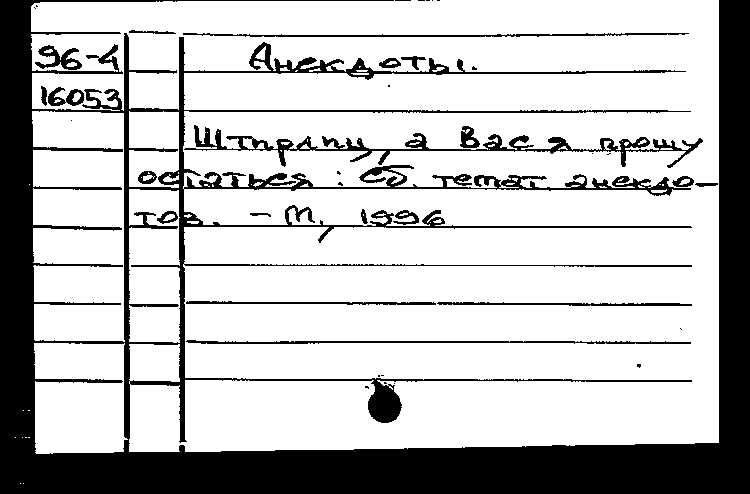 96-4 Анекдоты.
16053
Штирлиц, а Вас я прошу
остаться : Сб. темат анекдо-
тов. - М., 1996